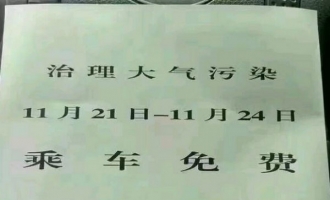 治理大气污染
11月21日-11月24日
乘车免费